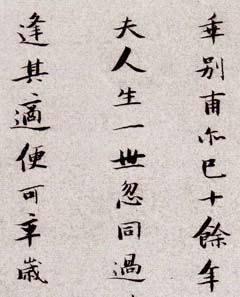 乖别甫尒巳十餘年
夫人生一世忽同過
逢其適便可卒歲